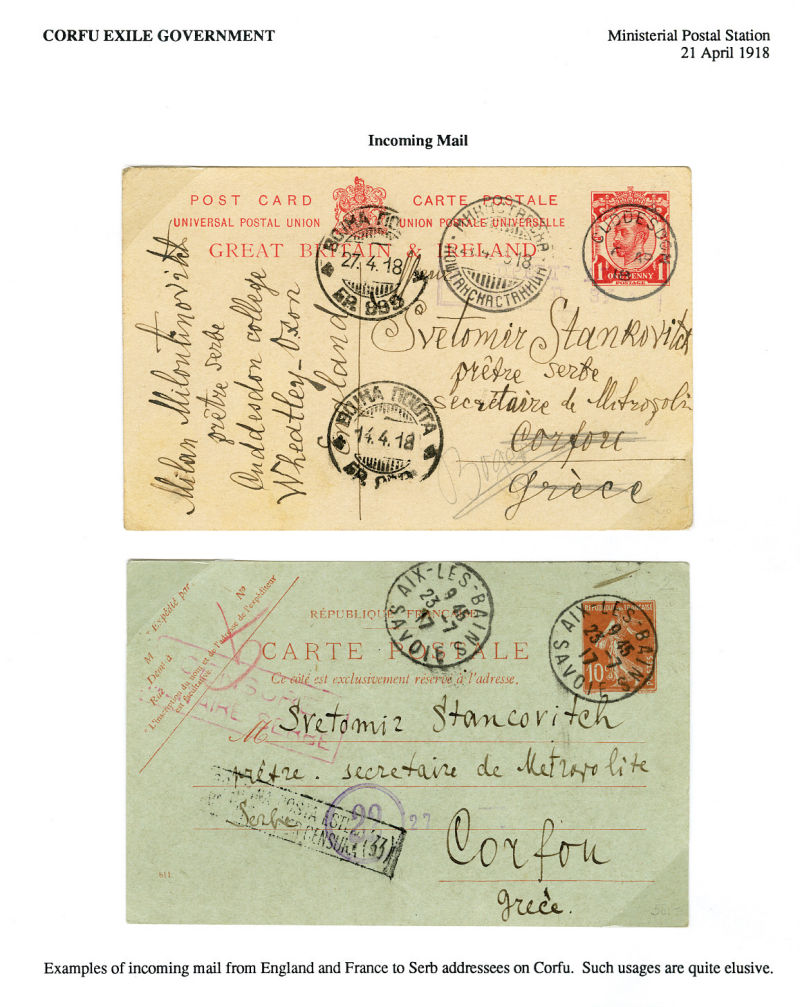 CORFU EXILE GOVERNMENT
Ministerial Postal Station
21 April 1918
Incoming Mail
POST CARD CARTE POSTALE
UNIVERSAL POSTAL UNION UNION POSTALE UNIVERSELLE
GREAT BRITAIN & IRELAND
ONE PENNY
1 1
POSTAGE
CUDDESDON
ВОЈНА ПОШТА
27.4.18
БР. 999
Milan Miloutinovitch
prêtre serbe
Cuddesdon college
Wheatley - Oxon
England
Svetomir Stankovitch
prêtre serbe
secrétaire de Métropolit
Corfou
Grèce
ВОЈНА ПОШТА
14.4.18
БР.
AIX-LES-BAINS
9 45
23-7
17
SAVOIE
RÉPUBLIQUE FRANÇAISE
CARTE POSTALE
Ce côté est exclusivement réservé à l'adresse.
No
Expédié par
M
Demeur
Rue
L'inscription du nom et de l'adresse de l'expéditeur
est facultative
RÉPUBLIQUE FRANÇAISE
10
AIX-LES-BAINS
9 45
23-7
17
SAVOIE
M Svetomir Stancovitch
prêtre. secretaire de Metropolite
Serbe
POSTA ESTERA
CENSURA (33)
22
27
Corfou
Grèce.
611
Examples of incoming mail from England and France to Serb addressees on Corfu. Such usages are quite elusive.